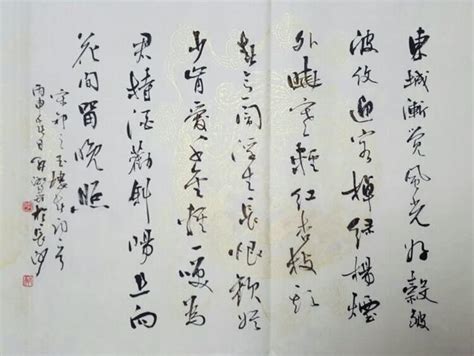 東城漸覺風光好縠皺
波紋迎客棹綠楊煙
外曉寒輕紅杏枝頭
春意鬧浮生長恨歡娛
少肯愛千金輕一為
君持酒勸斜陽且向
花間留晚照
宋祁之玉樓春詞
丙申